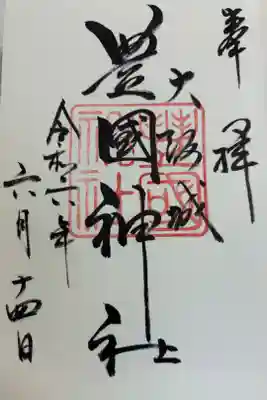 奉拝
大坂城上
豊國神社
令和六年
六月十四日